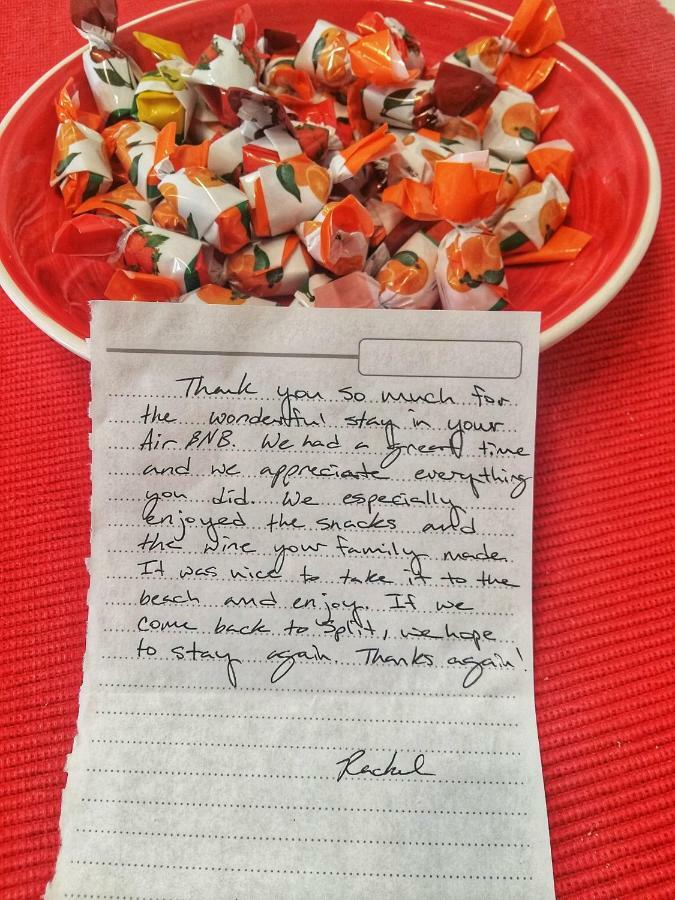 Thank you so much for
the wonderful stay in your
Air BNB. We had a great time
and we appreciate everything
you did. We especially
enjoyed the snacks and
the wine your family made.
It was nice to take it to the
beach and enjoy. If we
come back to Split, we hope
to stay again. Thanks again!
Rachel